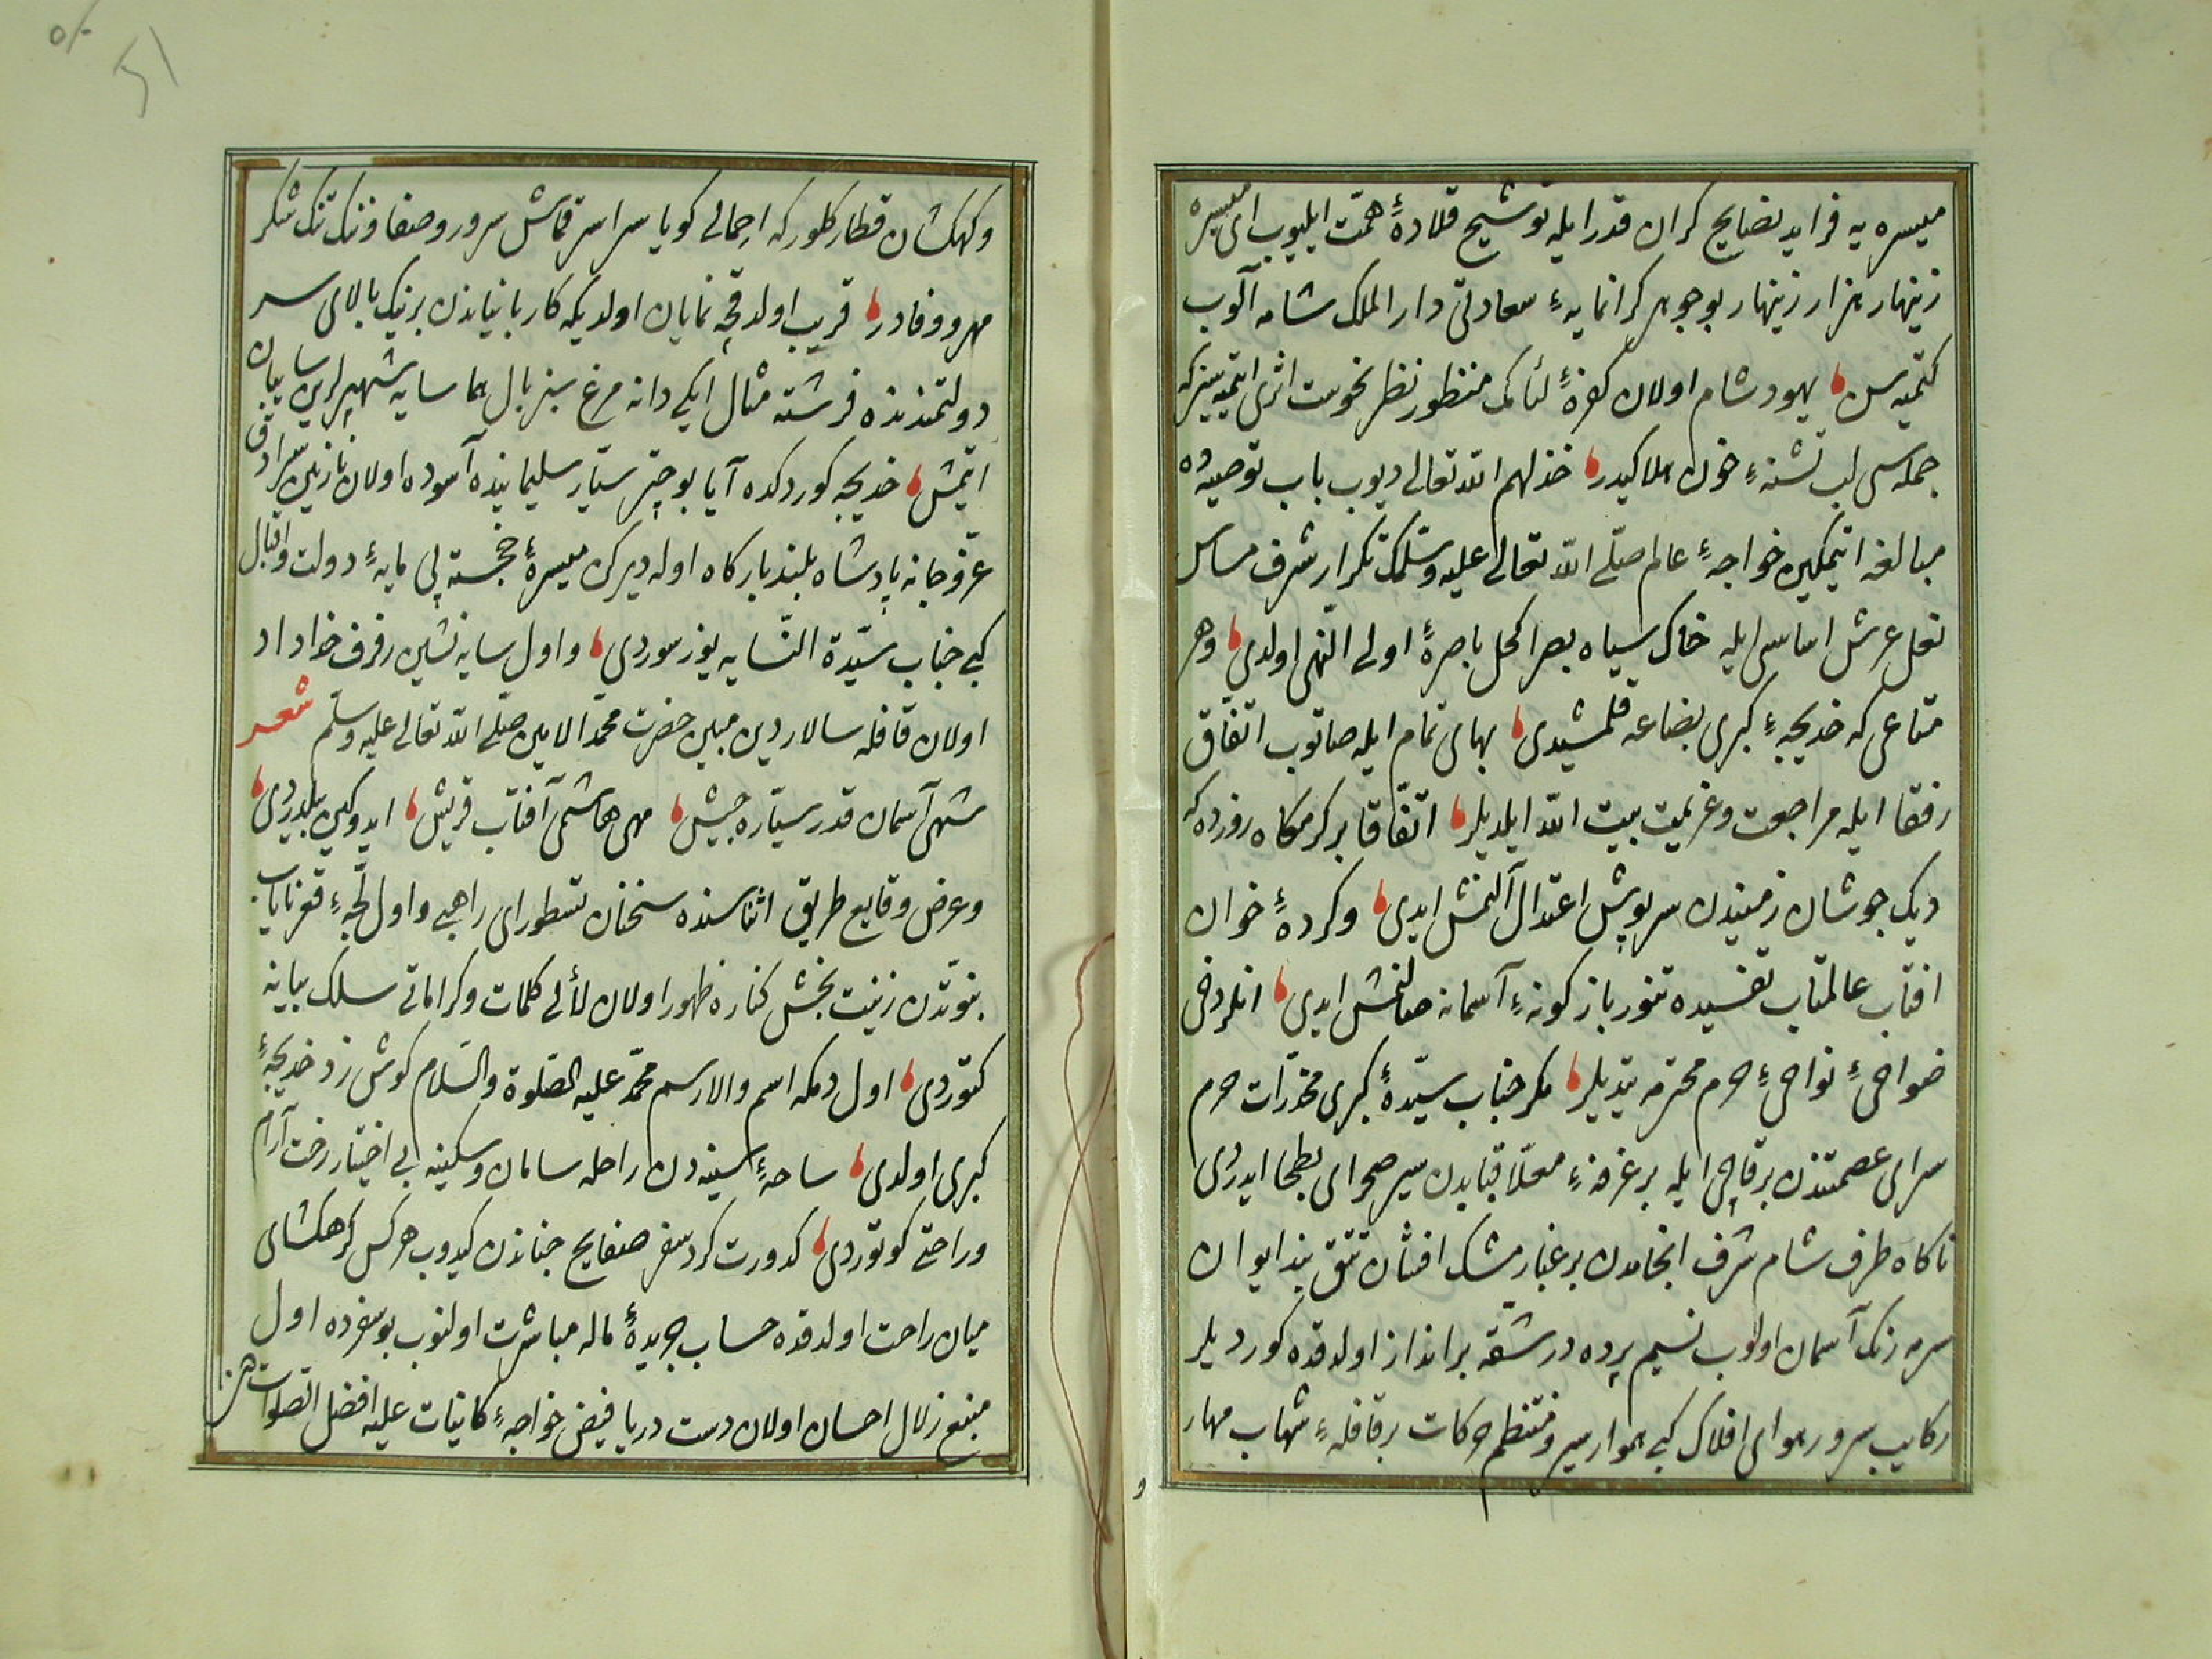 ميسره يه فرايد نصايح كران قدر ايله توشيح قلادهٔ همّت ايليوب اى ميسره
زينهار هزار زينهار بو جوهر كرانمايهٔ سعادتى دار الملك شامه آلوب
كتميه سن يهود شام اولان كفرهٔ لئامك منظور نظر نحوست اثرى ايتميه سز كه
جمله سى لب تشنهٔ خون املاكيدر خذلهم الله تعالى ديوب باب توصيه ده
مبالغه ايتمكين خواجهٔ عالم صلّى الله تعالى عليه وسلّمك تكرار شرف مساس
نعل عرش اساسى ايله خاك سياه بصرا كحل باصرهٔ اولى النّهى اولدى وهر
متاعى كه خديجهٔ كبرى بضاعه قلمشيدى بهاى تمام ايله صاتوب اتّفاق
رفقا ايله مراجعت وعزيمت بيت الله ايلديلر اتّفاقا بر كرمكاه روزده كه
ديك جوشان زميندن سرپوش اعتدال آلنمش ايدى وكردهٔ خوان
افتاب عالمتاب تفسيده تنور باز كونهٔ آسمانه صالنمش ايدى انلر دخى
ضواحىٔ نواحىٔ حرم محترمه يتديلر مكر جناب سيّدهٔ كبرى مخدّرات حرم
سراى عصمتدن برقاچى ايله بر غرفهٔ معلّا قبابدن سير صحراى بطحا ايدردى
ناكاه طرف شام شرف انجامدن بر غبار مشك افشان تتق بند ايوان
سرمه رنك آسمان اولوب نسيم پرده در شقّه برانداز اولدقده كورديلر
ركايب سرور هواى افلاك كبى هموار سير ومنتظم حركات بر قافلهٔ شهاب مهار
و
وكهكشان قطار كلور كه اجمالى كويا سراسر قماش سرور وصفا وتنك تنك شكر
مهر ووفادر قريب اولدقچه نمايان اولديكه كاربانياندن برينك بالاى سر
دولتمندنده فرشته مثال ايكى دانه مرغ سبز بال هما سايه شهپرلرين سايبان
ايتمش خديجه كوردكده آيا بو چتر ستّار سليمانيده آسوده اولان نازنين سرادق
عزّ وجا نه پادشاه بلند باركاه اوله ديركن ميسرهٔ خجسته پى مايهٔ دولت واقبال
كبى جناب سيّدة النّسايه يوز سوردى واول سايه نشين رفرف خداداد
اولان قافله سالار دين مبين حضرت محمّد الامين صلّى الله تعالى عليه وسلّم شعر
شهى آسمان قدر سيّاره جيش مهى هاشمى آفتاب قريش ايدوكين بلدردى
وعرض وقايع طريق اثناسنده سخنان نسطوراى راهبى واول لجّهٔ قعر ناياب
نبوّتدن زينت بخش كناره ظهور اولان لألى كلمات وكراماتى سلك بيانه
كتوردى اول دمكه اسم والا رسم محمّد عليه الصّلوة والسّلام كوش زد خديجهٔ
كبرى اولدى ساحهٔ سينه دن راحله سامان وسكينه بى اختيار رخت آرام
وراحتى كوتوردى كدورت كرد سفر صفايح جناندن كيدوب هركس كرهكشاى
ميان راحت اولدقده حساب جريدهٔ ماله مباشرت اولنوب بو سفرده اول
منبع زلال احسان اولان دست دريا فيض خواجهٔ كاينات عليه افضل الصّلوات
51